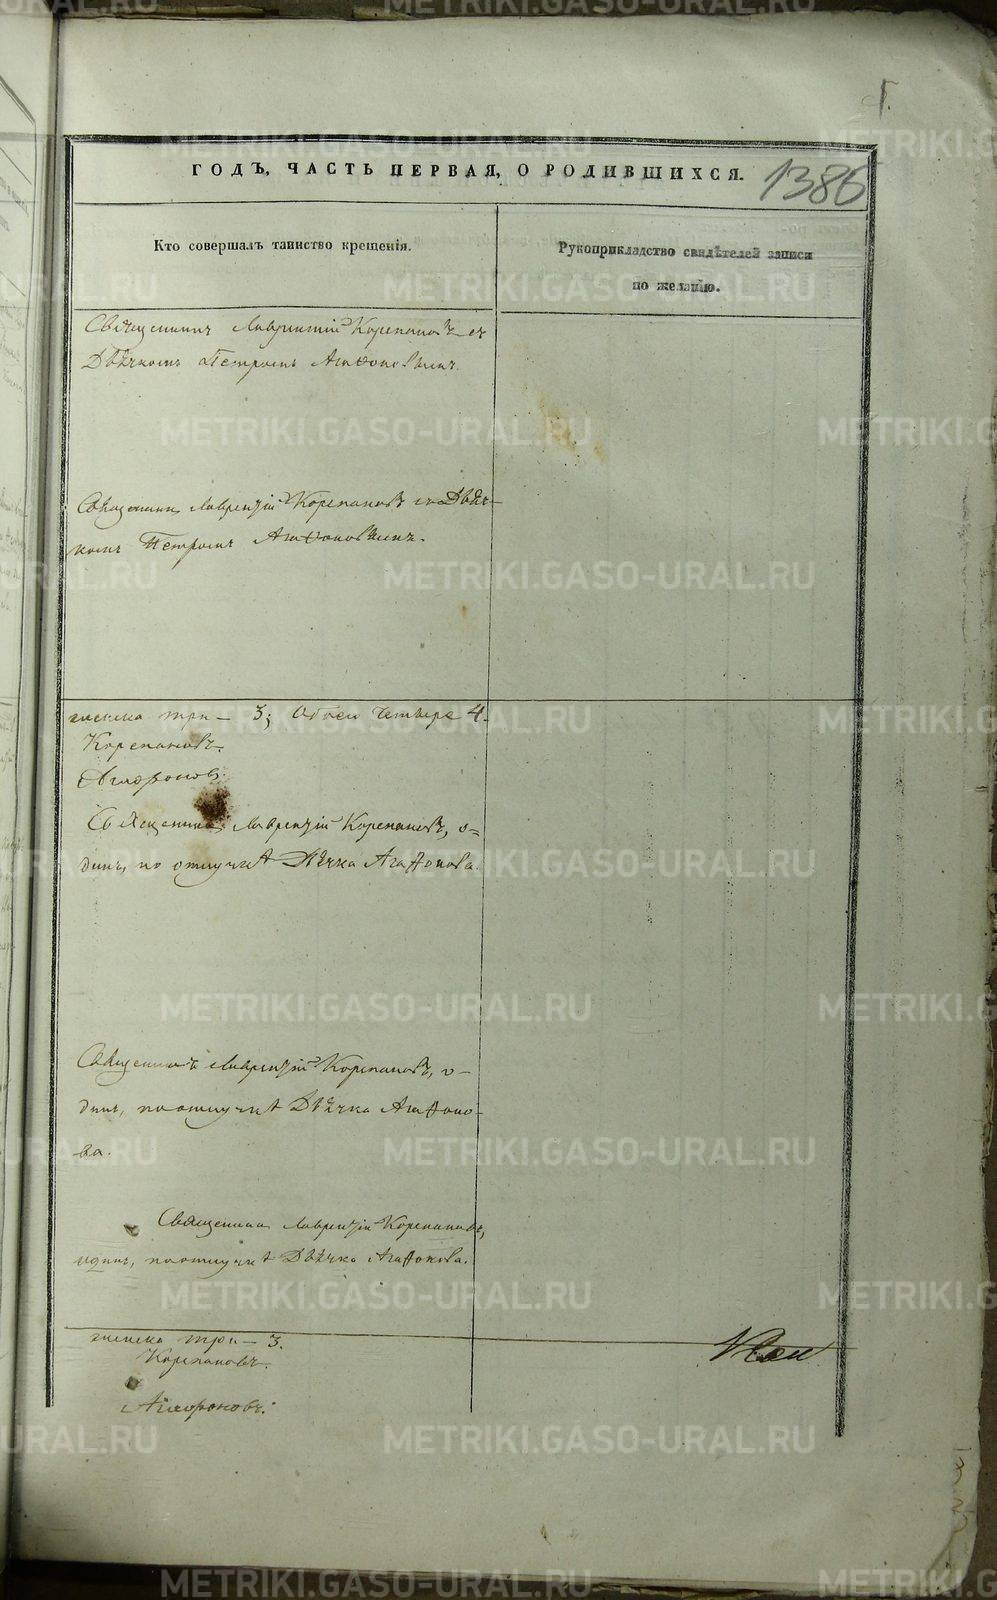 ГОДЪ, ЧАСТЬ ПЕРВАЯ, О РОДИВШИХСЯ.
1386
Кто совершалъ таинство крещенія.
Рукоприкладство свидѣтелей записи
по желанію.
Священникъ Лаврентій Корепановъ съ
Дьячкомъ Петромъ Агафоновымъ.
Священникъ Лаврентій Корепановъ съ Дьяч-
комъ Петромъ Агафоновымъ.
женска три — 3; Обоего четыре 4.
Корепановъ.
Агафоновъ.
Священникъ Лаврентій Корепановъ, о-
динъ, по отлучкѣ Дьячка Агафонова.
Священникъ Лаврентій Корепановъ, о-
динъ, по отлучкѣ Дьячка Агафоно-
ва.
Священникъ Лаврентій Корепановъ,
одинъ, по отлучкѣ Дьячка Агафонова.
женска три — 3.
Корепановъ.
Агафоновъ.
METRIKI.GASO-URAL.RU